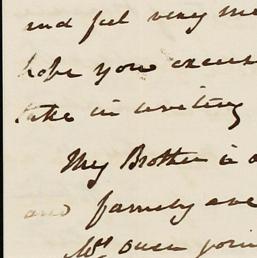 and feel very me
hope you excuse
take in writing
My Brother is a
and family are
Mrs Owen join